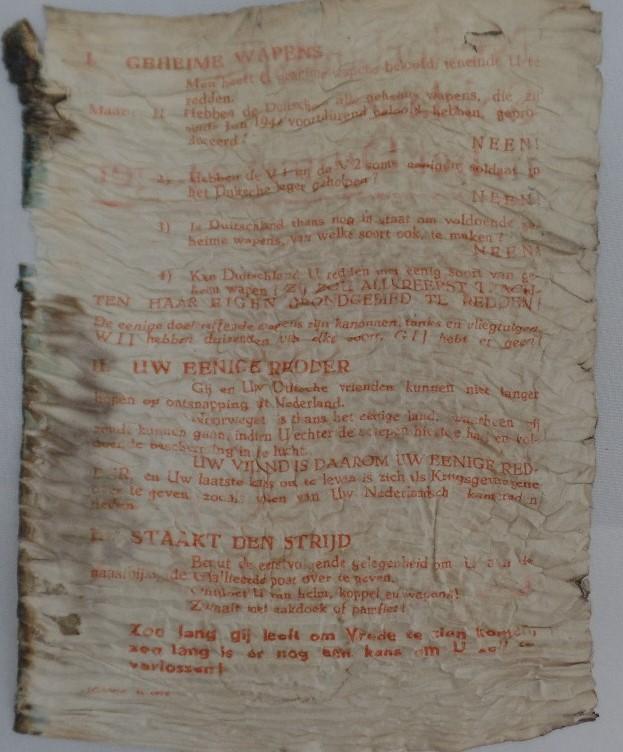 I. GEHEIME WAPENS
Men heeft U geheime wapens beloofd, teneinde U te
redden.
Maar: 1) Hebben de Duitschers alle geheime wapens, die zij
sinds Jan 194 voortdurend beloofd hebben, gepro-
duceerd?
NEEN!
2) Hebben de V 1 en de V 2 soms eenigen soldaat in
het Duitsche leger geholpen?
NEEN!
3) Is Duitschland thans nog in staat om voldoende ge-
heime wapens, van welke soort ook, te maken?
NEEN!
4) Kan Duitschland U redden met eenig soort van ge-
heim wapen? ZIJ ZOU ALLEREERST TRACH-
TEN HAAR EIGEN GRONDGEBIED TE REDDEN!
De eenige doeltreffende wapens zijn kanonnen, tanks en vliegtuigen.
WIJ hebben duizenden van elke soort, GIJ hebt er geen!
II. UW EENIGE REDDER
Gij en Uw Duitsche vrienden kunnen niet langer
hopen op ontsnapping uit Nederland.
Noorwegen is thans het eenige land, waarheen gij
zoudt kunnen gaan, indien U echter de schepen hiertoe had en vol-
doende bescherming in de lucht.
UW VIJAND IS DAAROM UW EENIGE RED-
DER, en Uw laatste kans om te leven is zich als Krijgsgevangene
over te geven zooals velen van Uw Nederlandsch kameraden
deden.
STAAKT DEN STRIJD
Benut de eerstvolgende gelegenheid om U aan de
naastbijzijnde Geallieerde post over te geven.
Ontdoet U van helm, koppel en wapens!
Zwaait met zakdoek of pamflet!
Zoo lang gij leeft om Vrede te zien komen,
zoo lang is er nog een kans om U zelf te
verlossen!